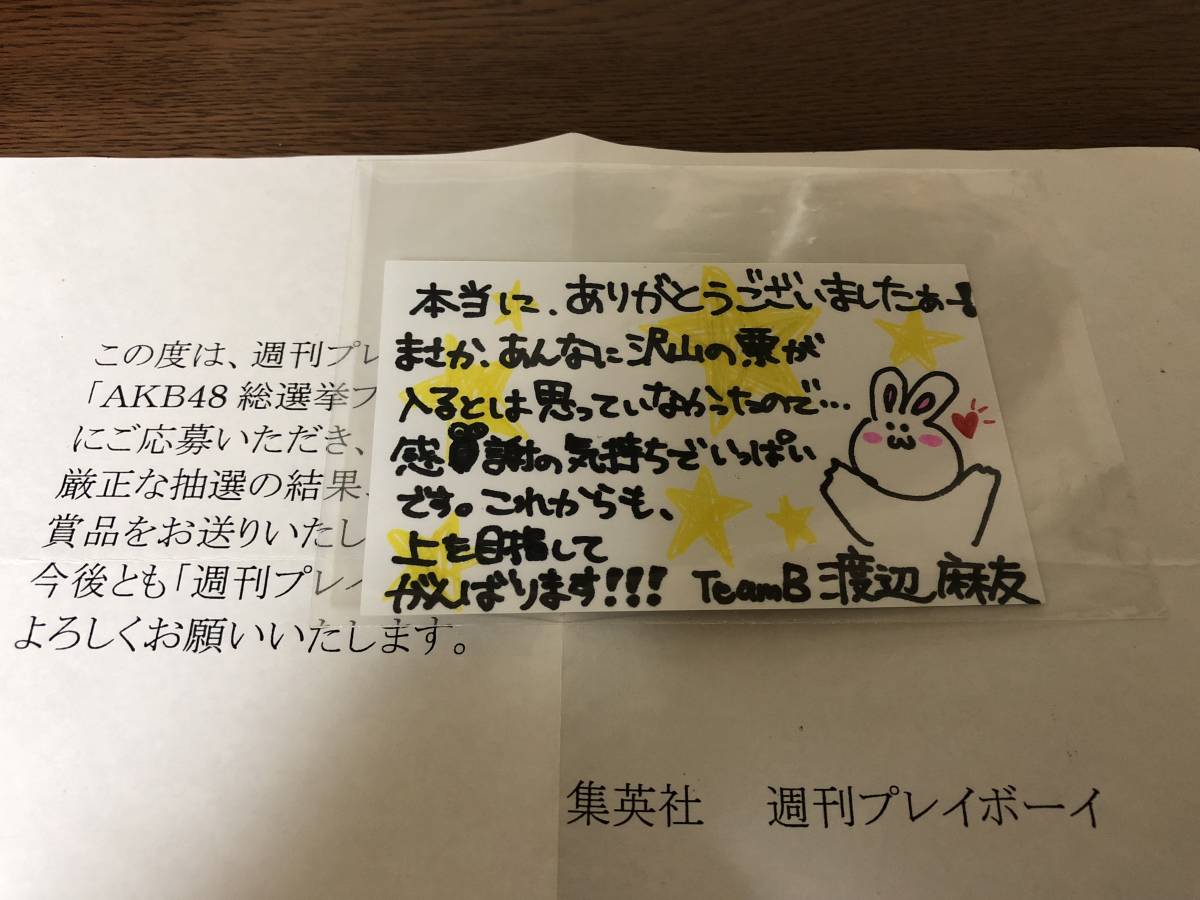 本当に、ありがとうございましたぁー!
まさか、あんなに沢山の票が
入るとは思っていなかったので…
感謝の気持ちでいっぱい
です。これからも、
上を目指して
がんばります!!!
TeamB 渡辺 麻友
この度は、週刊プレ
「AKB48 総選挙フ
にご応募いただき、
厳正な抽選の結果、
賞品をお送りいたし
今後とも「週刊プレイ
よろしくお願いいたします。
集英社 週刊プレイボーイ